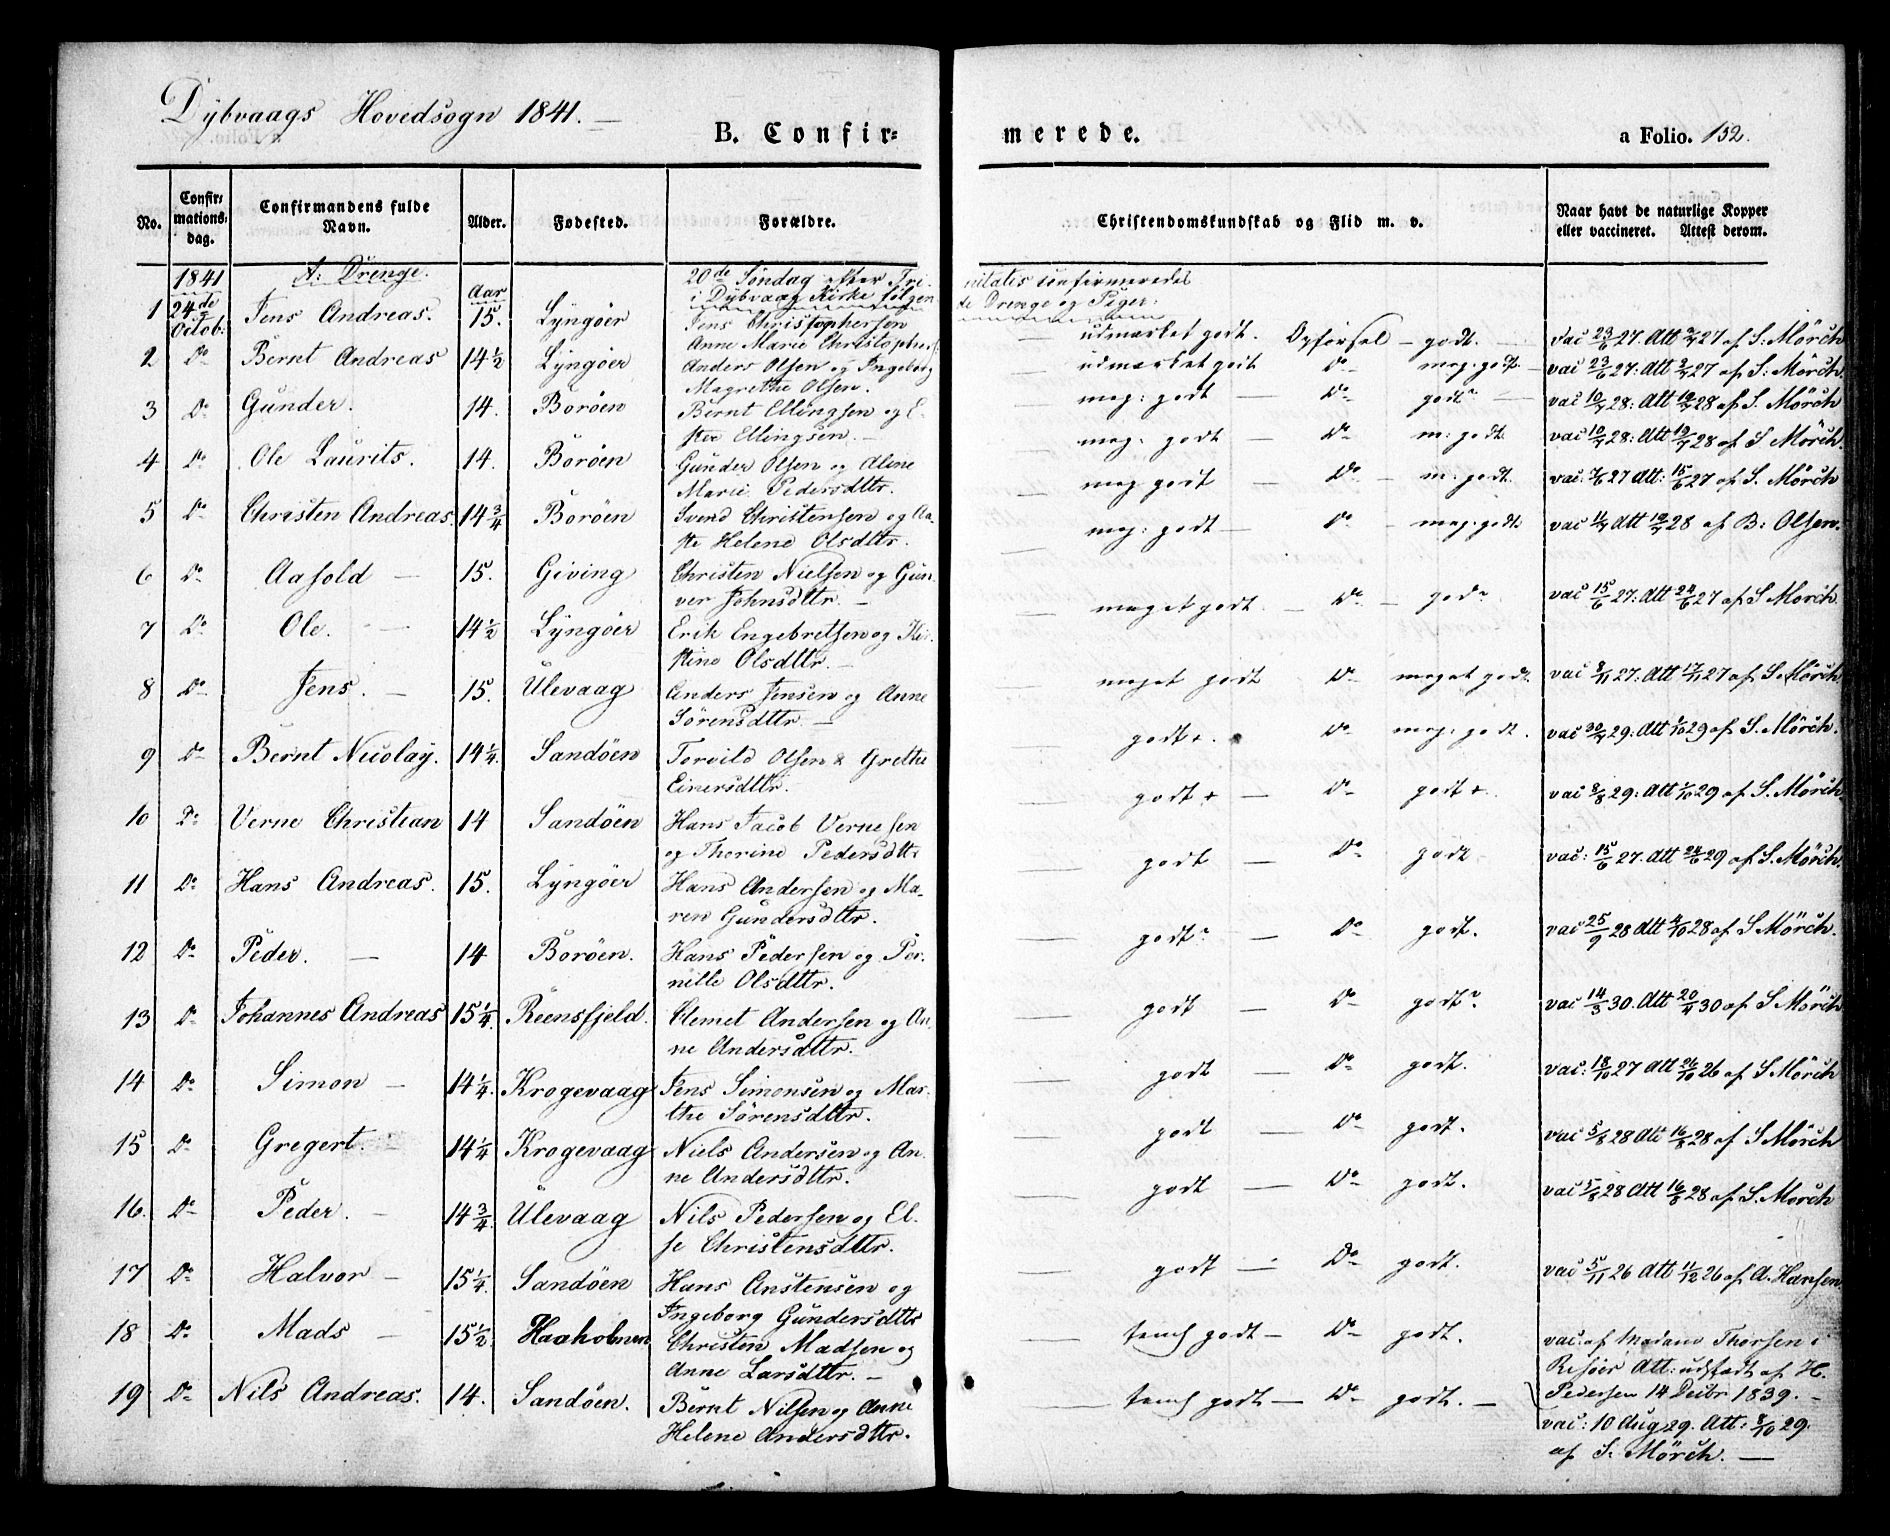 Dybvaags Hovedsogn 1841.
B. Confir=
merede.
a Folio. 152.
No.
Confir=
mations=
dag.
Confirmandens fulde
Navn.
Alder.
Fødested.
Forældre.
Christendomskundskab og Flid m. v.
Naar havt de naturlige Kopper
eller vaccineret. Attest derom.
1841 A: Drenge. Aar 20de Søndag efter Tri nitatis confirmeredes
24de Octob. i Dybvaag Kirke følgen de Drenge og Piger:
1 Jens Andreas. 15. Lyngöer Jens Christophersen udmærket godt. Opförsel – godt. vac 23/6 27. Att 2/7 27 af S. Mörch
Anne Marie Christophers
2 Do Bernt Andreas 14½ Lyngöer Anders Olsen og Ingeborg udmærket godt Do meg: godt. vac 23/6 27: Att 2/7 27 af S: Mörch
Magrethe Olsen.
3 Do Gunder. 14. Boröen Bernt Ellingsen og E- meg: godt Do godt vac 10/7 28: Att 19/7 28 af S. Mörch
ster Ellingsen. –
4 Do Ole Laurits. 14. Boröen Gunder Olsen og Alene meg: godt – Do m: godt vac 10/7 28: Att 19/7 28 af S Mörch.
Marie Pedersdttr.
5 Do Christen Andreas. 14¾ Boröen Svend Christensen og Aa- meg godt – Do – m: godt. vac: 7/6 27 Att: 15/6 27 af S. Mörch
ste Helene Olsdttr. meg: godt – Do – meg: godt vac 11/7 Att 19/7 28 af B: Olsen.
6 Do Aasold – 15. Giving Christen Nielsen og Gun-
ver Johnsdttr. – meget godt. – Do – godt vac 15/6 27: Att 24/6 27 af S Mörch.
7 Do Ole. – 14½ Lyngöer Erik Engebretsen og Kir-
stine Olsdttr. –
8 Do Jens. – 15. Ulevaag Anders Jensen og Anne meget godt Do meget godt. vac 8/11 27. Att 17/11 27 af S. Mörch
Sörensdttr. – godt+. Do meg: godt. vac 30/7 29: Att 1/10 29 af S. Mörch.
9 Do Bernt Nicolay. 14¼. Sandöen Torvild Olsen & Grethe
Einersdttr. godt + – Do godt +. vac 3/8 29: Att 1/10 29 af S. Mörch.
10 Do Verne Christian 14 Sandöen Hans Jacob Vernesen
og Thorine Pedersdttr godt – Do godt vac: 15/6 27. Att 24/6 29 af S. Mörch.
11 Do Hans Andreas. 15. Lyngöer Hans Andersen og Ma-
ren Gundersdttr. godt – Do godt. vac 25/9 28 Att 4/10 28 af S Mörch.
12 Do Peder. – 14 Boröen. Hans Pedersen og Per-
nille Olsdttr. godt – Do godt vac 14/3 30. Att 20/4 30 af S Mörch
13 Do Johannes Andreas 15¼. Reensfjeld. Clemet Andersen og An-
ne Andersdttr. godt – Do godt. vac: 18/10 27 Att 26/10 26 af S Mörch
14 Do Simon – 14¼. Krogevaag Jens Simonsen og Mar-
the Sörensdttr. godt – Do godt. vac 5/8 28 Att 16/8 28 af S Mörch
15 Do Gregert. – 14¼ Krogevaag Niels Andersen og An-
ne Andersdttr. godt – Do godt. vac 5/8 28 Att 16/8 28 af S. Mörch
16. Do Peder. – 14¾. Ulevaag Nils Pedersen og El-
se Christensdttr. godt – Do godt. vac 5/11 26 Att 11/12 26 af A. Hansen
17 Do Halvor – 15¼. Sandöen Hans Anstensen og
Ingeborg Gundersdttr
18 Do Mads – 15½. Haaholmen Christen Madsen og temf godt – Do godt. vac: af Madam Thorsen i
Anne Larsdttr. – Risöer Att: udstædt af H.
19 Do Nils Andreas. 14. Sandöen. Bernt Nilsen og Anne temf godt – Do – godt. – Pedersen 14 Decbr 1839. –
Helene Andersdttr. vac: 10 Aug 29. Att: 8/10 29.
af S. Mörch. –